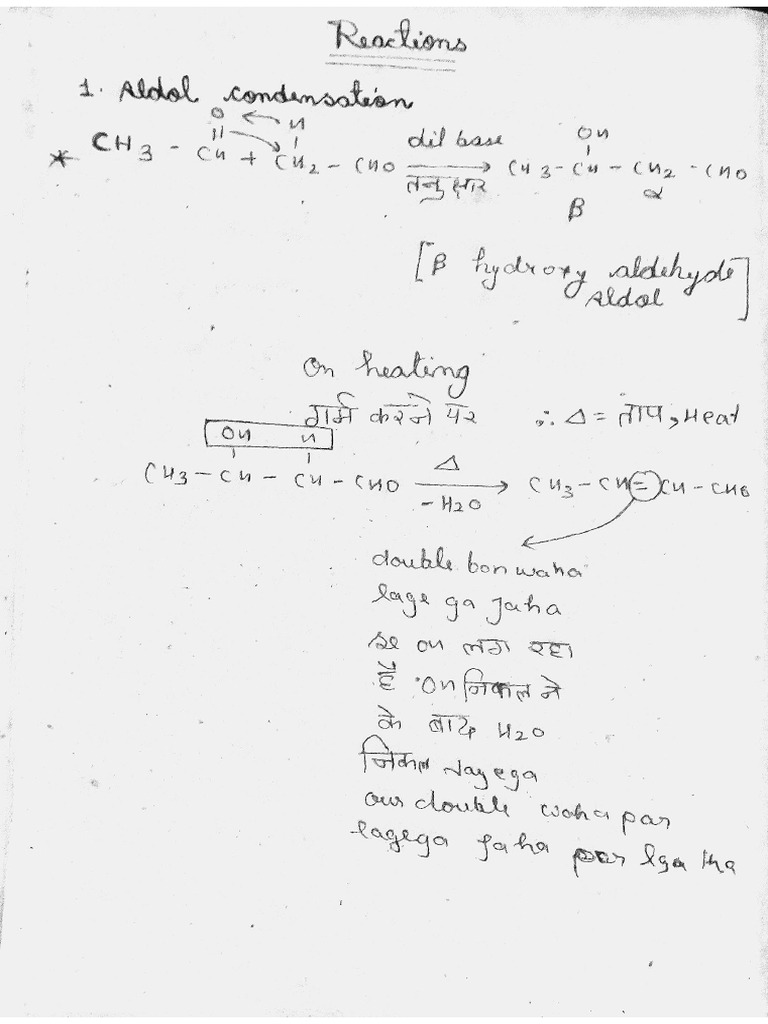 Reactions
1. Aldol condensation
O H
CH3 - CH + CH2 - CHO dil base तनु क्षार CH3 - CH - CH2 - CHO
OH
β α
[β hydroxy aldehyde
Aldol]
On heating
गर्म करने पर ∴ Δ = ताप, Heat
OH H
CH3 - CH - CH - CHO Δ -H2O CH3 - CH = CH - CHO
double bon waha
lage ga Jaha
se OH लग रहा
है OH निकल ने
के बाद H2O
निकल Jayega
our double waha par
lagega Jaha par lga tha